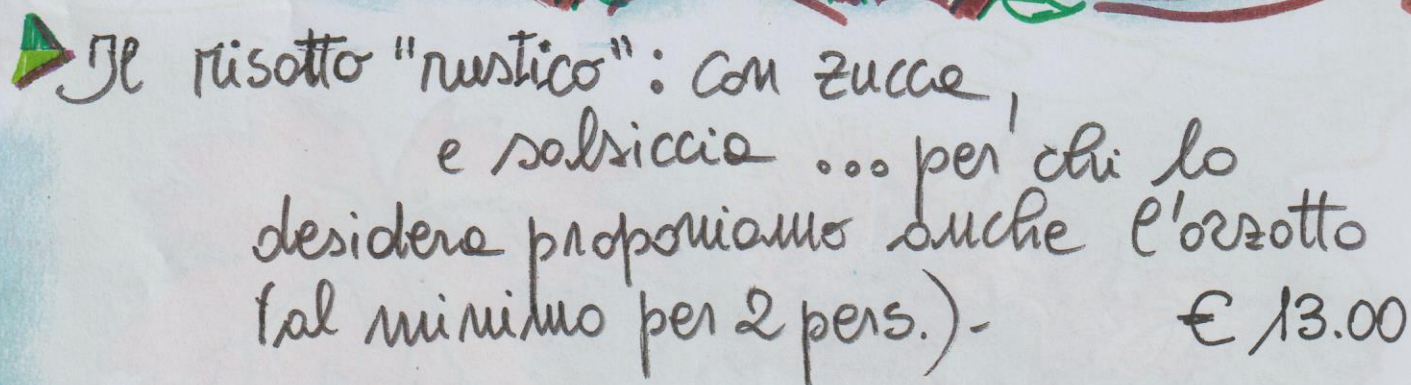 Il risotto "rustico": con zucca,
e salsiccia ... per chi lo
desidera proponiamo anche l'orzotto
(al minimo per 2 pers.)-   € 13.00